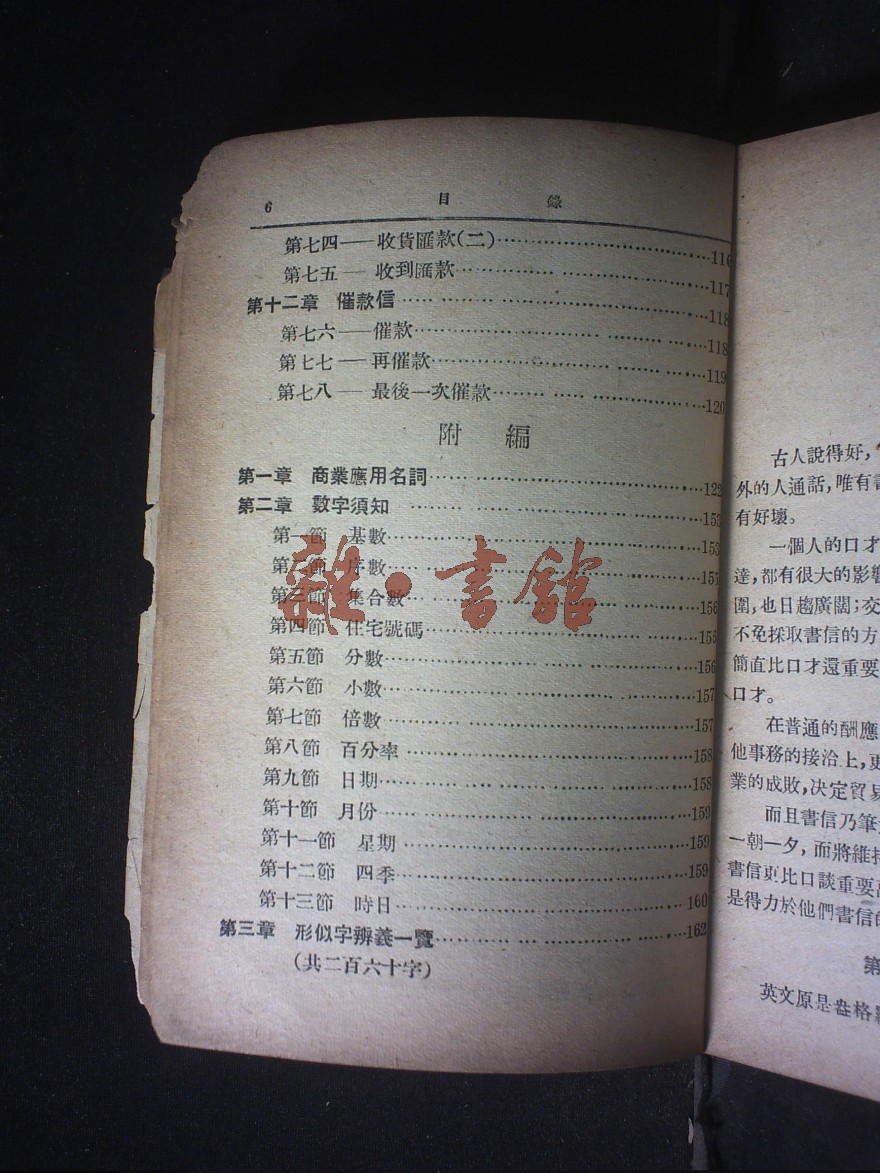 6 目 錄
第七四——收貨匯款(二)……116
第七五——收到匯款……117
第十二章 催款信……118
第七六——催款……118
第七七——再催款……119
第七八——最後一次催款……120
附 編
第一章 商業應用名詞……122
第二章 數字須知……153
第一節 基數……153
第二節 序數……
第三節 集合數……156
第四節 住宅號碼……155
第五節 分數……156
第六節 小數……157
第七節 倍數……157
第八節 百分率……158
第九節 日期……158
第十節 月份……159
第十一節 星期……159
第十二節 四季……159
第十三節 時日……160
第三章 形似字辨義一覽……162
(共二百六十字)
雜·書館
古人說得好,
外的人通話,唯有
有好壞。
一個人的口才
達,都有很大的影響
圍,也日趨廣闊;交
不免採取書信的方
簡直比口才還重要
口才。
在普通的酬應
他事務的接洽上,更
業的成敗,决定貿易
而且書信乃筆
一朝一夕,而將維持
書信更比口談重要
是得力於他們書信的
第
英文原是盎格